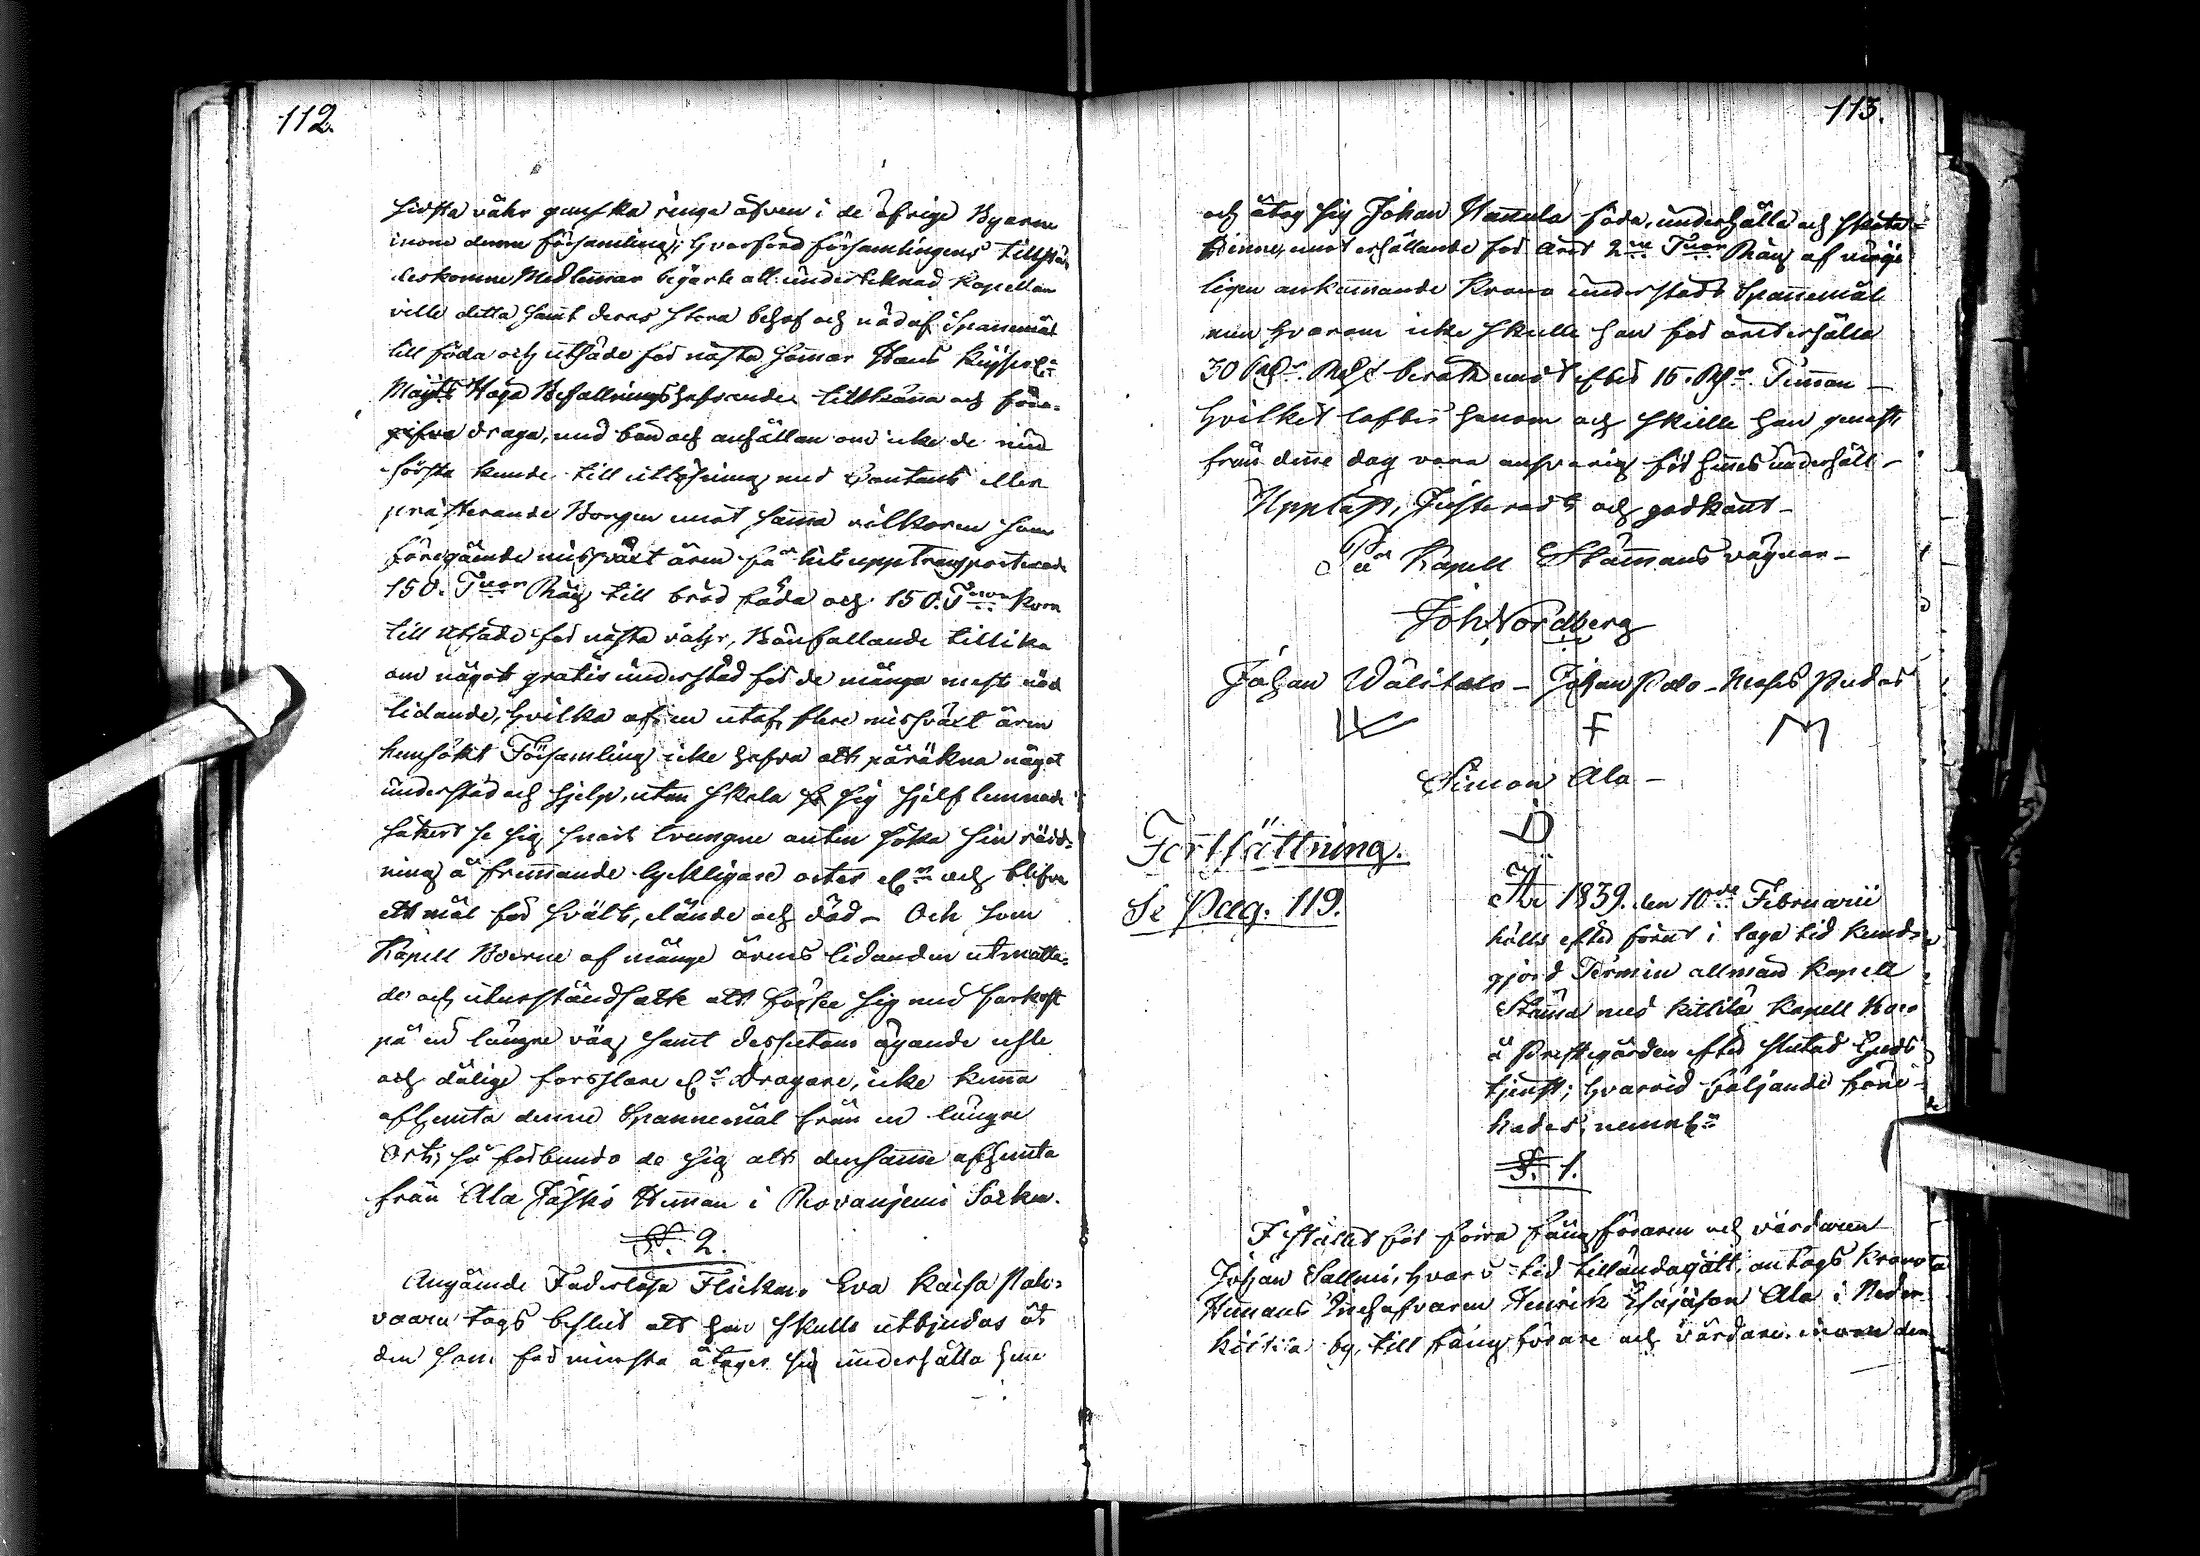 112.
sista vahr ganska ringa äfven i de öfrige Byarne
inom denna församling; hvarföre församlingens tillstä-
deskomne Medlemmar begärte att undertecknad Kapellan
ville detta samt deras stora behof och nöd af Spannemål
till föda och utsäde för nästa sommar Hans Keijserl:
Maijts Höga Befallningshafvande tillkänna och före-
gifva draga, med bön och anhållan om icke de med
första kunde till utlåning med Contant eller
presterande Borgen mot samma vilkoren som
föregående missväxt åren få hitupptransporterade
150. Tnor Råg till bröd föda och 150. Tnor Korn
till Utsäde för nästa vahr, Bönfallande tillika
om något gratis understöd för de många mest nöd
lidande, hvilka af en utaf flere missväxt åren
hemsökt Församling icke hafva att påräkna något
understöd och hjelp, utan skola sig sjelf lemnade
säkert se sig snart tvungne antin söka sin rädd-
ning å fremmande lyckligare orter elr och blifva
ett mål för svält, elände och död – Och som
Kapell Boerne af många årens lidanden utmatta-
de och uturståndsatte att förse sig med forkost
på en längre väg samt dessutom ägande usle
och dålige forslare elr Dragare, icke kunna
afhemta denna Spannemål från en längre
Ort, så förbundo de sig att densamma afhemta
från Ala Jääskö Hemman i Rovaniemi Sockn.
§. 2.
Angående Faderlösa Flickan Eva Kaisa
vaara togs beslut att hon skulle utbjudas åt
den som för minsta åtager sig underhålla hene
113.
och åtog sig Johan Hannula föda, underhålla och sköta
henne, mot erhållande för året 2ne Tnor Råg af
ligen ankommande Krono understöds Spannemål
men hvarom icke skulle han för året erhålla
30 Rbr efter 15. Rbr Tunnan –
hvilket lofvas honom och skulle han genast
från denne dag vara ansvarig för hennes underhåll –
Uppläst, Justerad och godkänt –
På Kapell Stämmans vägnar –
Joh. Nordberg
Johan Wälitalo – Johan Palo – Moses Pudas
F M
Simon Ala –
Fortsättning.
Se Pag. 119.
År 1839. den 10de Februarii
hölls efter förut i laga tid kund-
gjord Termin allmän Kapell
Stämma med Kittilä Kapell Boer
å Prestegården efter slutad Guds
tjenst; hvarvid följande före-
hades, nemnln
§. 1.
I stället för förra fångföraren och vårdaren
Johan Salmi, hvars tid tilländagått, antogs Krono
Hemmans Innehafvaren Henrik Esajason Ala i Neder
Kittilä by, till fångförare och vårdare inom den